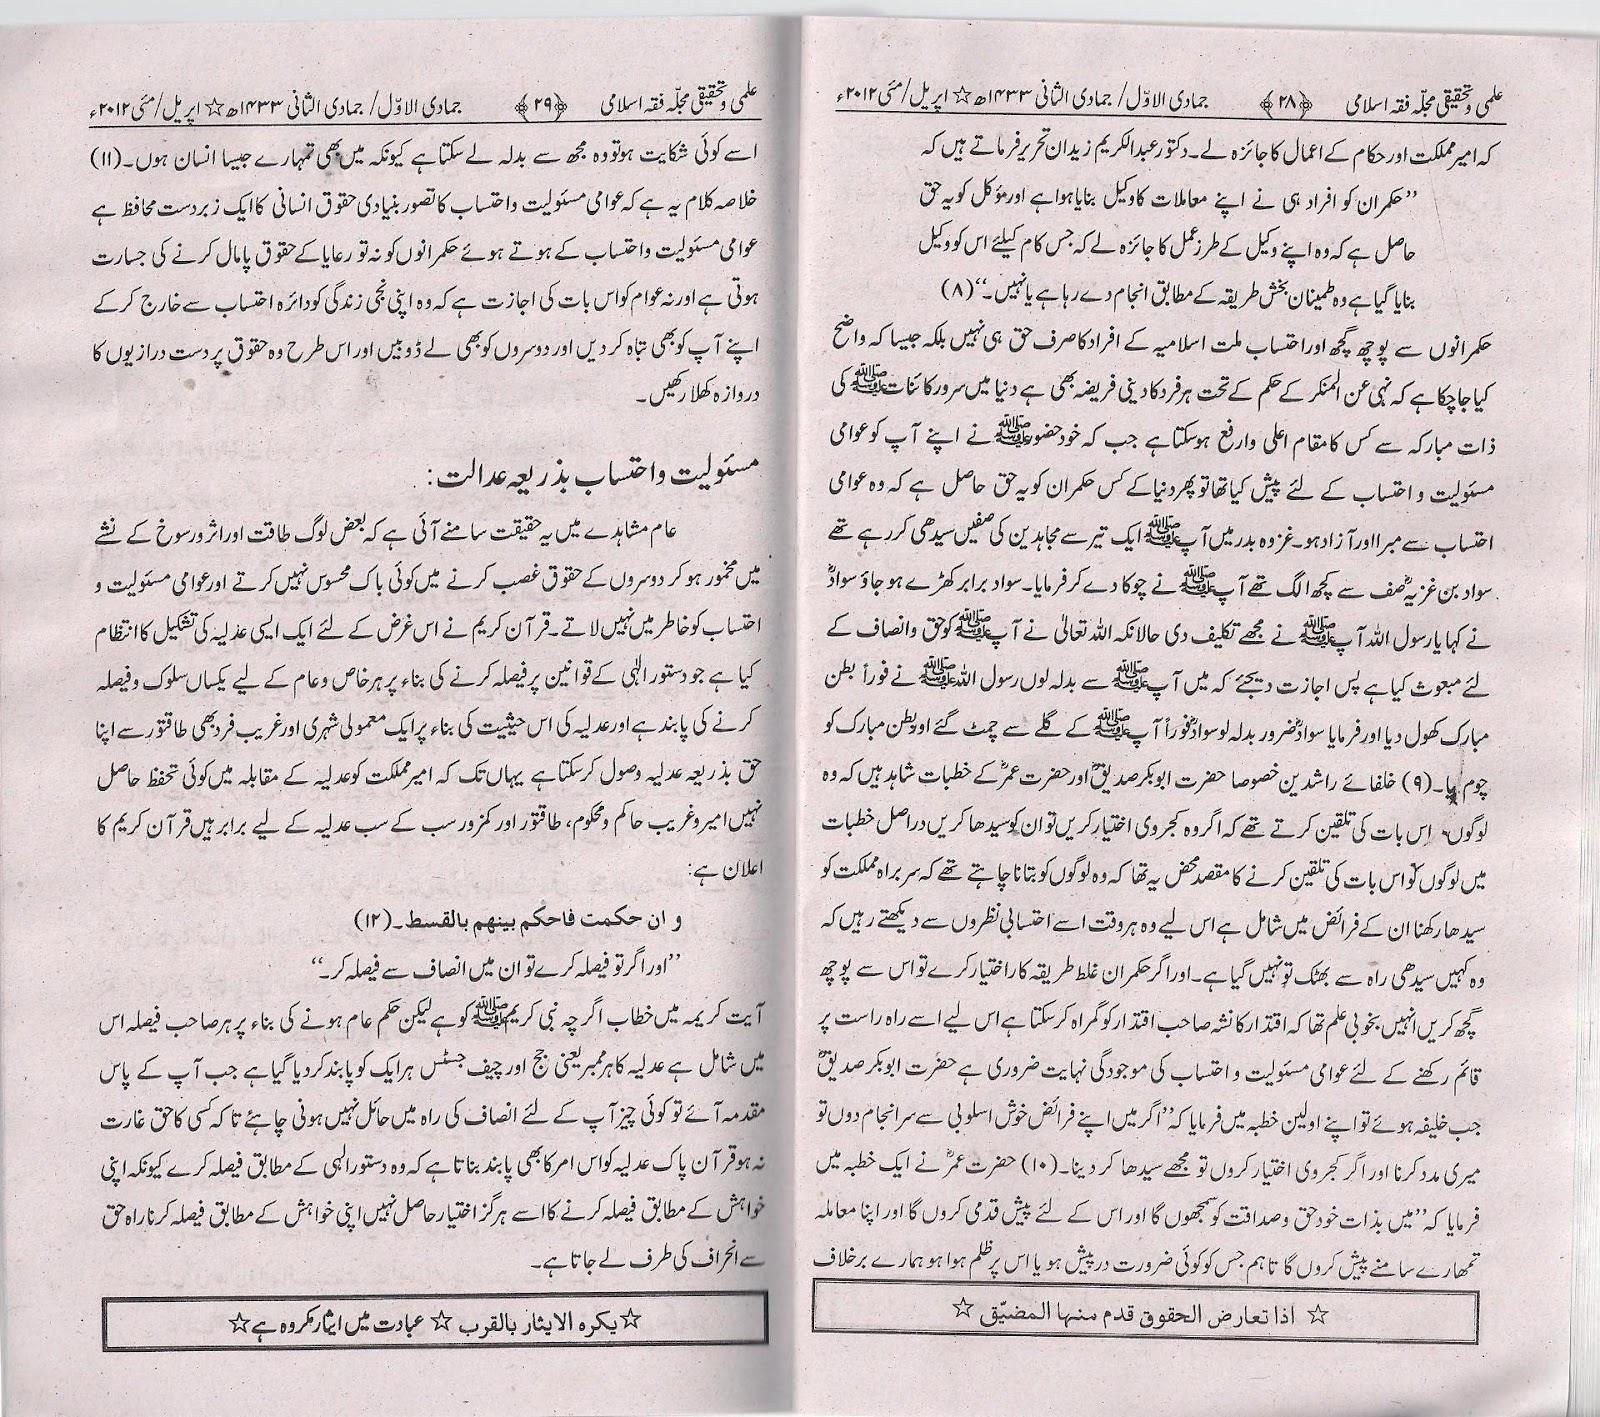 علمی و تحقیقی مجلہ فقہ اسلامی ﴿۲۸﴾ جمادی الاوّل / جمادی الثانی ۱۴۳۳ھ ☆ اپریل / مئی ۲۰۱۲ء
کہ امیر مملکت اور حکام کے اعمال کا جائزہ لے۔ دکتور عبدالکریم زیدان تحریر فرماتے ہیں کہ
”حکمران کو افراد ہی نے اپنے معاملات کا وکیل بنایا ہوا ہے اور مؤکل کو یہ حق
حاصل ہے کہ وہ اپنے وکیل کے طرز عمل کا جائزہ لے کہ جس کام کیلئے اس کو وکیل
بنایا گیا ہے وہ طمینان بخش طریقہ کے مطابق انجام دے رہا ہے یا نہیں۔“ (۸)
حکمرانوں سے پوچھ گچھ اور احتساب ملت اسلامیہ کے افراد کا صرف حق ہی نہیں بلکہ جیسا کہ واضح
کیا جا چکا ہے کہ نہی عن المنکر کے حکم کے تحت ہر فرد کا دینی فریضہ بھی ہے دنیا میں سرور کائنات ﷺ کی
ذات مبارکہ سے کس کا مقام اعلی وارفع ہو سکتا ہے جب کہ خود حضور ﷺ نے اپنے آپ کو عوامی
مسئولیت و احتساب کے لئے پیش کیا تھا تو پھر دنیا کے کس حکمران کو یہ حق حاصل ہے کہ وہ عوامی
احتساب سے مبرا اور آزاد ہو۔ غزوہ بدر میں آپ ﷺ ایک تیر سے مجاہدین کی صفیں سیدھی کر رہے تھے
سواد بن غزیہؓ صف سے کچھ الگ تھے آپ ﷺ نے چوکا دے کر فرمایا۔ سواد برابر کھڑے ہو جاؤ سوادؓ
نے کہا یا رسول اللہ آپ ﷺ نے مجھے تکلیف دی حالانکہ اللہ تعالیٰ نے آپ ﷺ کو حق و انصاف کے
لئے مبعوث کیا ہے پس اجازت دیجئے کہ میں آپ ﷺ سے بدلہ لوں رسول اللہ ﷺ نے فوراً بطن
مبارک کھول دیا اور فرمایا سوادؓ ضرور بدلہ لو سوادؓ فوراً آپ ﷺ کے گلے سے چمٹ گئے اور بطن مبارک کو
چوم لیا۔ (۹) خلفائے راشدین خصوصا حضرت ابوبکر صدیقؓ اور حضرت عمرؓ کے خطبات شاہد ہیں کہ وہ
لوگوں اس بات کی تلقین کرتے تھے کہ اگر وہ کجروی اختیار کریں تو ان کو سیدھا کریں دراصل خطبات
میں لوگوں کو اس بات کی تلقین کرنے کا مقصد محض یہ تھا کہ وہ لوگوں کو بتانا چاہتے تھے کہ سربراہ مملکت کو
سیدھا رکھنا ان کے فرائض میں شامل ہے اس لیے وہ ہر وقت اسے احتسابی نظروں سے دیکھتے رہیں کہ
وہ کہیں سیدھی راہ سے بھٹک تو نہیں گیا ہے۔ اور اگر حکمران غلط طریقہ کار اختیار کرے تو اس سے پوچھ
گچھ کریں انہیں بخوبی علم تھا کہ اقتدار کا نشہ صاحب اقتدار کو گمراہ کر سکتا ہے اس لیے اسے راہ راست پر
قائم رکھنے کے لئے عوامی مسئولیت و احتساب کی موجودگی نہایت ضروری ہے حضرت ابوبکر صدیقؓ
جب خلیفہ ہوئے تو اپنے اولین خطبہ میں فرمایا کہ ”اگر میں اپنے فرائض خوش اسلوبی سے سرانجام دوں تو
میری مدد کرنا اور اگر کجروی اختیار کروں تو مجھے سیدھا کر دینا۔ (۱۰) حضرت عمرؓ نے ایک خطبہ میں
فرمایا کہ ”میں بذات خود حق و صداقت کو سمجھوں گا اور اس کے لئے پیش قدمی کروں گا اور اپنا معاملہ
تمھارے سامنے پیش کروں گا تاہم جس کو کوئی ضرورت درپیش ہو یا اس پر ظلم ہوا ہو ہمارے برخلاف
☆ اذا تعارض الحقوق قدم منها المضيّق ☆
علمی و تحقیقی مجلہ فقہ اسلامی ﴿۲۹﴾ جمادی الاوّل / جمادی الثانی ۱۴۳۳ھ ☆ اپریل / مئی ۲۰۱۲ء
اسے کوئی شکایت ہو تو وہ مجھ سے بدلہ لے سکتا ہے کیونکہ میں بھی تمہارے جیسا انسان ہوں۔ (۱۱)
خلاصہ کلام یہ ہے کہ عوامی مسئولیت و احتساب کا تصور بنیادی حقوق انسانی کا ایک زبردست محافظ ہے
عوامی مسئولیت و احتساب کے ہوتے ہوئے حکمرانوں کو نہ تو رعایا کے حقوق پامال کرنے کی جسارت
ہوتی ہے اور نہ عوام کو اس بات کی اجازت ہے کہ وہ اپنی نجی زندگی کو دائرہ احتساب سے خارج کر کے
اپنے آپ کو بھی تباہ کر دیں اور دوسروں کو بھی لے ڈوبیں اور اس طرح وہ حقوق پر دست درازیوں کا
دروازہ کھلا رکھیں۔
مسئولیت و احتساب بذریعہ عدالت:
عام مشاہدے میں یہ حقیقت سامنے آئی ہے کہ بعض لوگ طاقت اور اثر و رسوخ کے نشے
میں مخمور ہو کر دوسروں کے حقوق غصب کرنے میں کوئی باک محسوس نہیں کرتے اور عوامی مسئولیت و
احتساب کو خاطر میں نہیں لاتے۔ قرآن کریم نے اس غرض کے لئے ایک ایسی عدلیہ کی تشکیل کا انتظام
کیا ہے جو دستور الہی کے قوانین پر فیصلہ کرنے کی بناء پر ہر خاص و عام کے لیے یکساں سلوک و فیصلہ
کرنے کی پابند ہے اور عدلیہ کی اس حیثیت کی بناء پر ایک معمولی شہری اور غریب فرد بھی طاقتور سے اپنا
حق بذریعہ عدلیہ وصول کر سکتا ہے یہاں تک کہ امیر مملکت کو عدلیہ کے مقابلہ میں کوئی تحفظ حاصل
نہیں امیر و غریب حاکم و محکوم، طاقتور اور کمزور سب کے سب عدلیہ کے لیے برابر ہیں قرآن کریم کا
اعلان ہے:
و ان حکمت فاحکم بینهم بالقسط۔ (۱۲)
”اور اگر تو فیصلہ کرے تو ان میں انصاف سے فیصلہ کر۔“
آیت کریمہ میں خطاب اگرچہ نبی کریم ﷺ کو ہے لیکن حکم عام ہونے کی بناء پر ہر صاحب فیصلہ اس
میں شامل ہے عدلیہ کا ہر ممبر یعنی جج اور چیف جسٹس ہر ایک کو پابند کر دیا گیا ہے جب آپ کے پاس
مقدمہ آئے تو کوئی چیز آپ کے لئے انصاف کی راہ میں حائل نہیں ہونی چاہئے تاکہ کسی کا حق غارت
نہ ہو قرآن پاک عدلیہ کو اس امر کا بھی پابند بناتا ہے کہ وہ دستور الہی کے مطابق فیصلہ کرے کیونکہ اپنی
خواہش کے مطابق فیصلہ کرنے کا اسے ہرگز اختیار حاصل نہیں اپنی خواہش کے مطابق فیصلہ کرنا راہ حق
سے انحراف کی طرف لے جاتا ہے۔
☆ یکره الایثار بالقرب ☆ عبادت میں ایثار مکروہ ہے ☆